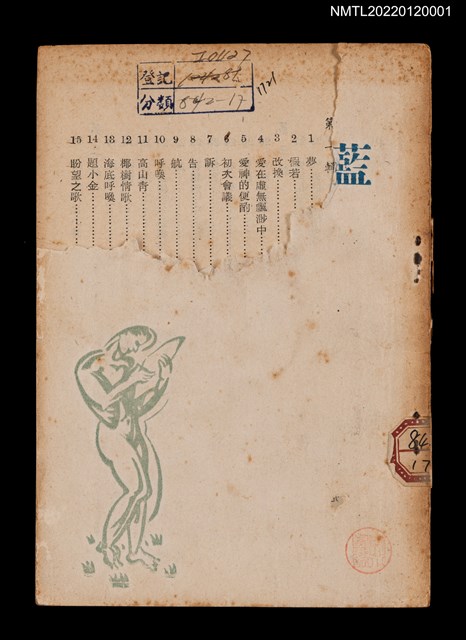 NMTL20220120001
10127
登記
分類 842-17
1721
藍
第一輯
1 夢
2 假若
3 改換
4 愛在虛無飄渺中
5 愛神的便酌
6 初次會議
7 訴
8 告
9 航
10 呼喚
11 高山青
12 椰樹情歌
13 海底呼喚
14 題小金
15 盼望之歌
84
17